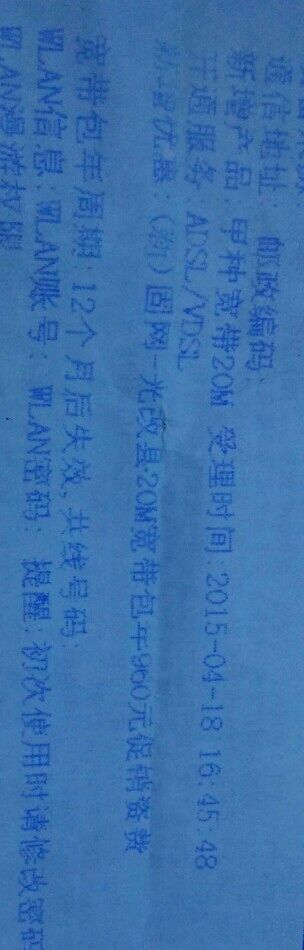 通信地址: 邮政编码:
新增产品:甲种宽带20M 受理时间:2015-04-18 16:45:48
开通服务:ADSL/VDSL
新增优惠:(浙)固网-光改县20M宽带包年960元促销资费
宽带包年周期:12个月后失效,共线号码:
WLAN信息:WLAN账号: WLAN密码: 提醒:初次使用时请修改密码
WLAN漫游权限